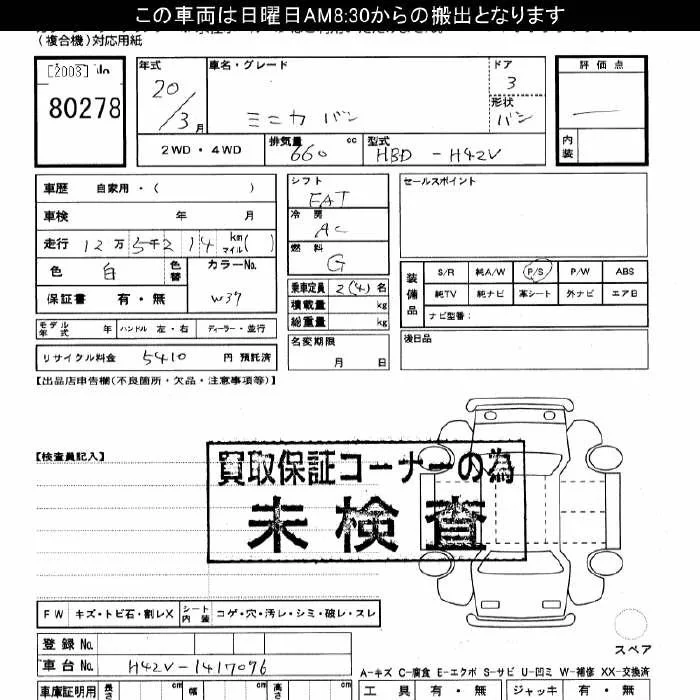 この車両は日曜日AM8:30からの搬出となります
(複合機)対応用紙
[2003] No
80278
年式 20/3月
車名・グレード
ミニカ バン
ドア 3
形状 バン
評価点
内装
2WD・4WD
排気量 660 cc
型式 HBD-H42V
車歴 自家用・( )
車検 年 月
走行 12万5千214 km マイル( )
色 白 色替
カラーNo. W37
保証書 有・無
シフト FAT
冷房 AC
燃料 G
乗車定員 2(4)名
積載量 kg
総重量 kg
名変期限 月 日
セールスポイント
装備品
S/R 純A/W P/S P/W ABS
純TV 純ナビ 革シート 外ナビ エアB
ナビ型番:
後日品
モデル年式 年 ハンドル 左・右 ディーラー・並行
リサイクル料金 5410 円 預託済
【出品店申告欄(不良箇所・欠品・注意事項等)】
【検査員記入】
買取保証コーナーの為
未検査
FW キズ・トビ石・割レX シート内装 コゲ・穴・汚レ・シミ・破レ・スレ
スペア
登録No.
車台No. H42V-1417096
A-キズ C-腐食 E-エクボ S-サビ U-凹ミ W-補修 XX-交換済
車庫証明用 長さ cm 幅 cm 高さ cm
工具 有・無 ジャッキ 有・無